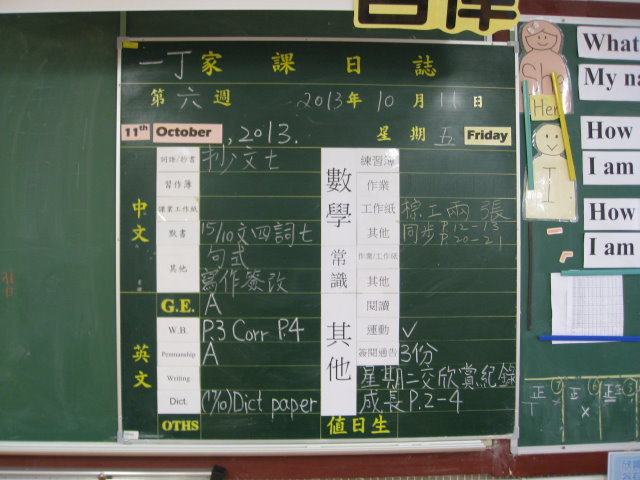 一丁家課日誌
第六週 2013年10月11日
11th October , 2013. 星期五 Friday
中文
詞語/抄書 抄文七
習作簿
課業工作紙
默書 15/10文四詞七
其他 句式
寫作簽改
G.E. A
英文
W.B. P.3 Corr P.4
Penmanship A
Writing
Dict. Dict paper
OTHS
數學
練習簿
作業
工作紙 綜工兩張
其他 同步P.12-13
P.20-21
常識
作業/工作紙
其他
其他
閱讀
運動 ✓
簽閱通告 3份
星期二交欣賞紀錄
成長P.2-4
值日生
What
My na
How
I am
How
I am
She
Her
I